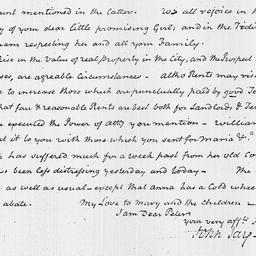 unt mentioned in the latter. We all rejoice in
y of your dear little promising Girl; and in the
respecting her and all your Family.
Rise in the Value of real property in the City, and the Prospect
ses, are agreable Circumstances - altho Rents may rise
to increase those which are punctually paid by good
that fair & reasonable Rents are best both for Landlords &
executed the Power of Atty you mention - William
it to you with those which you sent for Maria & ca.
has suffered much for a week past from her old
been less distressing yesterday and today - The
as well as usual - except that Anna has a Cold
abate. My Love to Mary and the children -
I am Dear Peter
your very affte.
John Jay